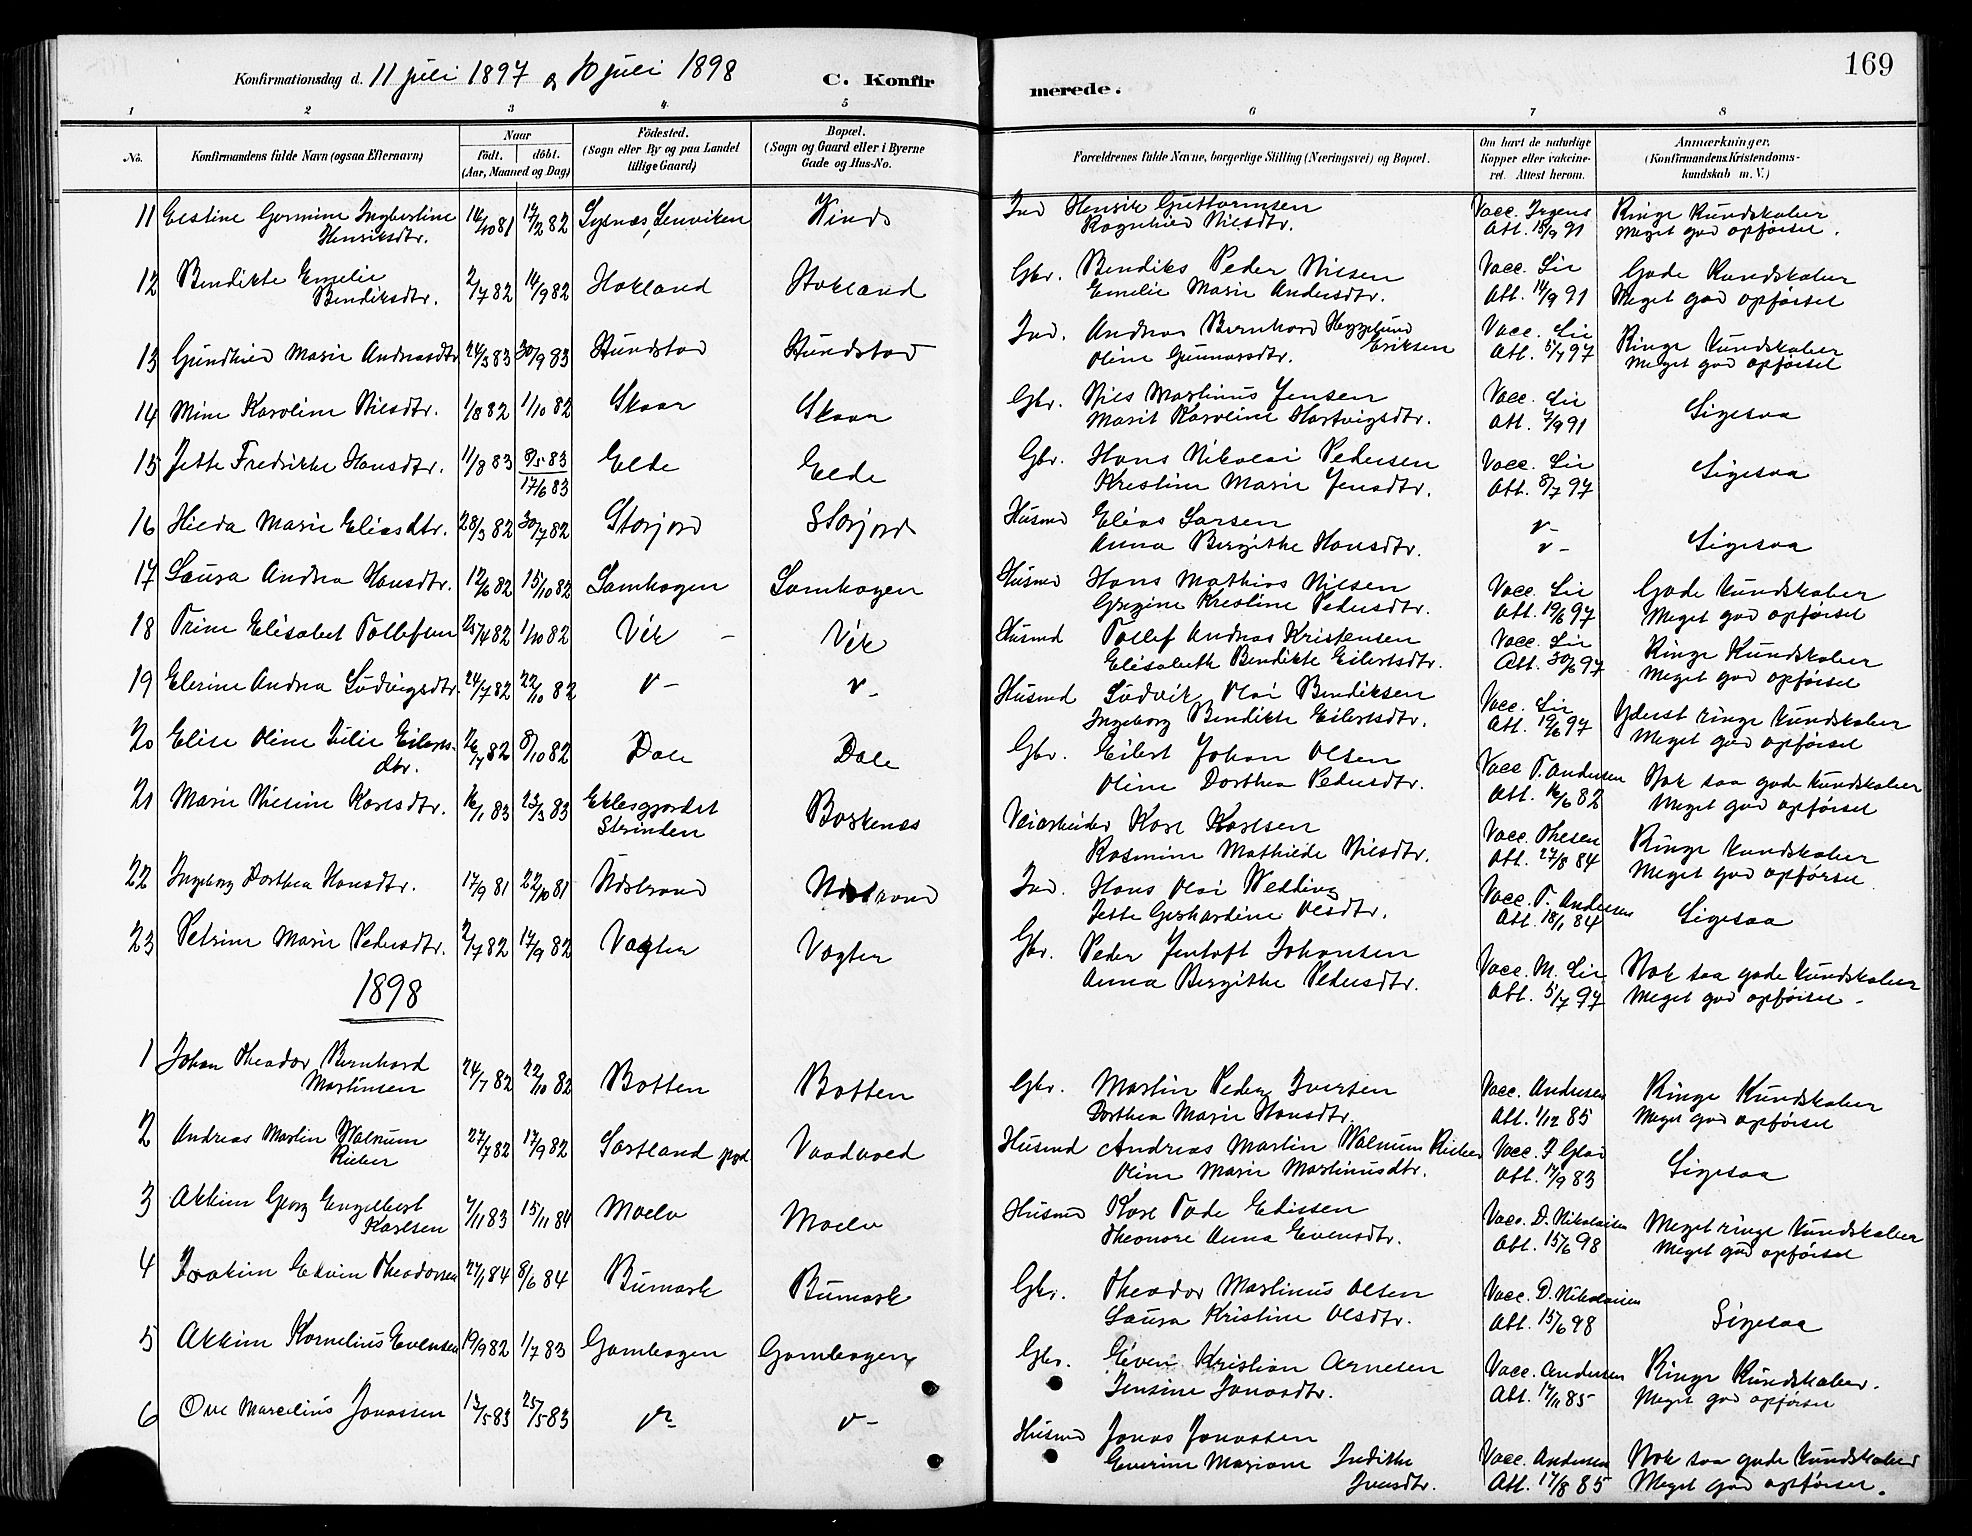 169
Konfirmationsdag d. 11 juli 1897 og 10 juli 1898
C. Konfir merede.
1 2 3 4 5 6 7 8
No.
Konfirmandens fulde Navn (ogsaa Efternavn)
Naar
født. døbt.
(Aar, Maaned og Dag)
Fødested.
(Sogn eller By og paa Landet
tillige Gaard)
Bopæl.
(Sogn og Gaard eller i Byerne
Gade og Hus-No.
Forældrenes fulde Navne, borgerlige Stilling (Næringsvei) og Bopæl.
Om havt de naturlige
Kopper eller vakcine-
ret. Attest herom.
Anmærkninger.
(Konfirmandens Kristendoms-
kundskab m. V.)
11 Germine Ingbertine 16/10 81 17/2 82 Lysnæs, Lenviken Kind Ind Henrik Guttormsen Vacc. Irgens Ringe Kundskaber
Henriksdtr. Ragnhild Nilsdtr. Att. 15/9 91 Meget god opførsel.
12 Bendikte Emelie 2/7 82 14/9 82 Hokland Hokland Gbr. Bendiks Peder Nilsen Vacc. Lie Gode Kundskaber
Bendiksdtr. Emelie Marie Andersdtr. Att. 14/9 91 Meget god opførsel
13 Gundhild Marie Andreasdtr 24/5 83 30/9 83 Hundstad Hundstad Ind. Andreas Bernhard Heggelund Eriksen Vacc. Lie Ringe Kundskaber
Oline Gunnarsdtr. Att. 5/7 97 Meget god opførsel
14 Mine Karoline Nilsdtr. 1/8 82 1/10 82 Skaar Skaar Gbr. Nils Martinus Jensen Vacc. Lie Ligesaa
Marit Karoline Hartvigsdtr. Att. 7/9 91
15 Jette Fredrikke Hansdtr. 11/8 83 8/5 83 17/6 83 Elde Elde Gbr. Hans Nikolai Pedersen Vacc. Lie Ligesaa
Kristine Marie Jensdtr. Att. 8/7 97
16 Hilda Marie Eliasdtr. 28/3 82 30/7 82 Storjord Storjord Husmd Elias Larsen v - Ligesaa
Anna Bergithe Hansdtr. v -
17 Laura Andrea Hansdtr. 12/6 82 15/10 82 Samhagen Samhagen Husmd Hans Mathias Nilsen Vacc. Lie Gode Kundskaber
Kristine Pedersdtr. Att. 19/6 97 Meget god opførsel
18 Trine Elisabet Tollefsen 25/4 82 1/10 82 Vik - Vik Husmd Tollef Andreas Kristensen Vacc. Lie Ringe Kundskaber
Elisabeth Bendikte Eilertsdtr. Att. 30/6 97 Meget god opførsel
19 Elerine Andrea Ludvigsdtr. 24/7 82 22/10 82 v - v - Husmd Ludvik Olai Bendiksen Vacc. Lie Yderst ringe Kundskaber
Ingeborg Bendikte Eilertsdtr. Att. 19/6 97 Meget god opførsel
20 Elise Oline Julie Eilerts- 26/7 82 8/10 82 Dale Dale Gbr. Eilert Johan Olsen Vacc T. Andersen Nok saa gode Kundskaber
dtr. Oline Dorthea Pedersdtr. Att. 16/6 82 Meget god opførsel
21 Marie Nilsine Karlsdtr. 16/1 83 25/3 83 Borkenes Veiarbeider Karl Karlsen Vacc. Thesen Ringe Kundskaber
Strinden Rasmine Mathilde Nilsdtr. Att. 27/8 84 Meget god opførsel
22 Ingeborg Dorthea Hansdtr. 17/9 81 22/10 81 Udstrand Udstrand Ind. Hans Olai Wedding Vacc. T. Andersen Ligesaa
Jette Gerhardine Olsdtr. Att. 18/1 84
23 Petrine Marie Pedersdtr. 2/7 82 17/9 82 Vagter Vagter Gbr. Peder Jentoft Johansen Vacc. M. Lie Nok saa gode Kundskaber
Anna Bergithe Pedersdtr. Att. 5/7 97 Meget god opførsel -
1898
1 Johan Theodor Bernhard 24/7 82 22/10 82 Botten Botten Gbr. Martin Peder Iversen Vacc. Andersen Ringe Kundskaber
Martinsen Dorthea Marie Hansdtr. Att. 1/12 85 Meget god opførsel
2 Andreas Martin Walnum 27/7 82 17/9 82 Sortland prgd Vaadvold Husmd Andreas Martin Walnum Kicher Vacc. Ligesaa
Oline Marie Martinusdtr. Att. 17/9 83
3 Akkim Georg Engelbert 7/11 83 15/11 84 Moelv Moelv Husmd Karl Tode Edissen Vacc. D. Nikolaisen Meget ringe Kundskaber
Karlsen Theonore Anna Evensdtr. Att. 15/6 98 Meget god opførsel
4 Joakim Edvin Theodorsen 27/1 84 8/6 84 Bumark Bumark Gbr. Theodor Martinus Olsen Vacc. D. Nikolaisen Ligesaa
Laura Kristine Olsdtr. Att. 15/6 98
5 Akkim Kornelius Evensen 19/9 82 1/7 83 Gambogen Gambogen Gbr. Even Kristian Arnesen Vacc. Andersen Ringe Kundskaber.
Jensine Jonasdtr. Att. 17/11 85 Meget god opførsel
6 Ove Marcelius Jonassen 13/5 83 25/5 83 v - v - Husmd Jonas Jonassen Vacc. Andersen Nok saa gode Kundskaber
Everine Mariane Indikke Att. 17/8 85 Meget god opførsel.
Ivensdtr.